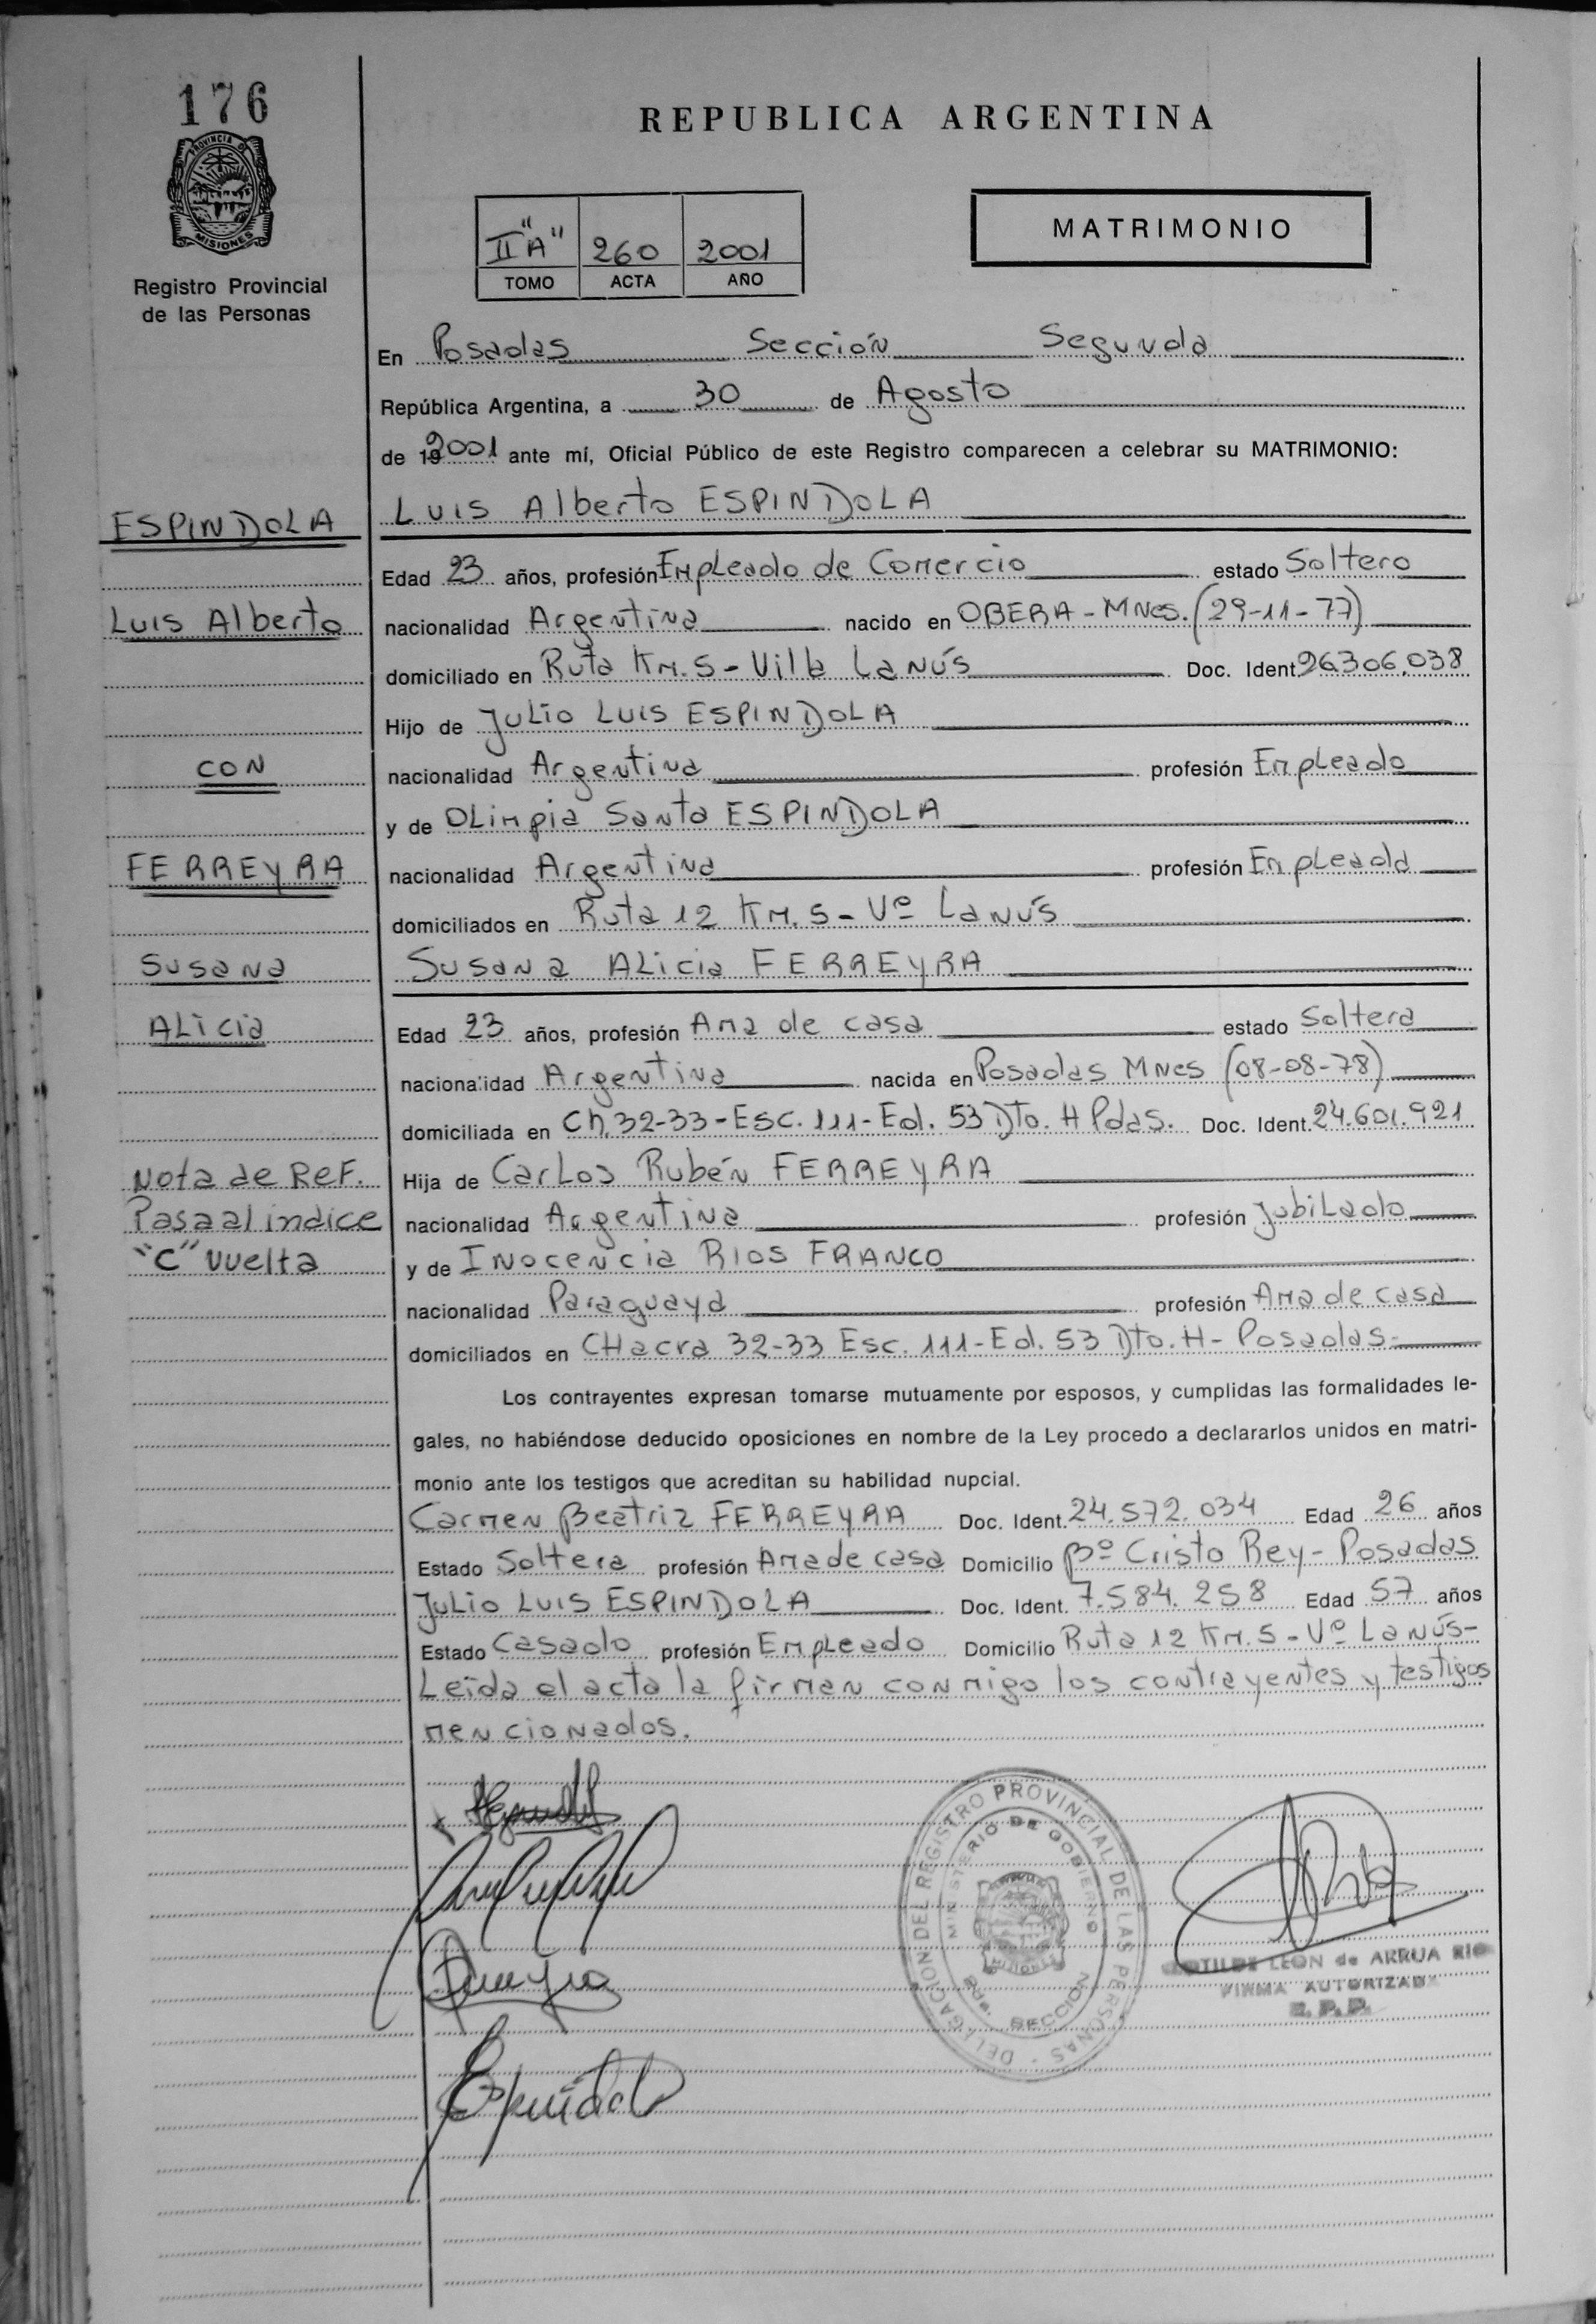 176
REPUBLICA ARGENTINA
PROVINCIA DE
MISIONES
Registro Provincial
de las Personas
II "A" 260 2001
TOMO ACTA AÑO
MATRIMONIO
En Posadas Sección Segunda
República Argentina, a 30 de Agosto
de 192001 ante mí, Oficial Público de este Registro comparecen a celebrar su MATRIMONIO:
ESPINDOLA
Luis Alberto ESPINDOLA
Edad 23 años, profesión Empleado de Comercio estado Soltero
Luis Alberto
nacionalidad Argentina nacido en OBERA - MNes. (29-11-77)
domiciliado en Ruta Km. 5 - Villa Lanús Doc. Ident. 26.306.038
Hijo de Julio Luis ESPINDOLA
CON
nacionalidad Argentina profesión Empleado
y de Olimpia Santa ESPINDOLA
FERREYRA
nacionalidad Argentina profesión Empleada
domiciliados en Ruta 12 Km. 5 - Vª Lanús
Susana
Susana Alicia FERREYRA
Alicia
Edad 23 años, profesión Ama de casa estado Soltera
nacionalidad Argentina nacida en Posadas MNes (08-08-78)
domiciliada en Ch. 32-33 - Esc. 111 - Ed. 53 Dto. H Pdas. Doc. Ident. 24.601.921
Nota de Ref.
Hija de Carlos Rubén FERREYRA
Pasa al indice
nacionalidad Argentina profesión Jubilado
"C" vuelta
y de Inocencia RIOS FRANCO
nacionalidad Paraguaya profesión Ama de casa
domiciliados en CHacra 32-33 Esc. 111 - Ed. 53 Dto. H - Posadas.-
Los contrayentes expresan tomarse mutuamente por esposos, y cumplidas las formalidades le-
gales, no habiéndose deducido oposiciones en nombre de la Ley procedo a declararlos unidos en matri-
monio ante los testigos que acreditan su habilidad nupcial.
Carmen Beatriz FERREYRA Doc. Ident. 24.572.034 Edad 26 años
Estado Soltera profesión Ama de casa Domicilio Bº Cristo Rey - Posadas
Julio Luis ESPINDOLA Doc. Ident. 7.584.258 Edad 57 años
Estado Casado profesión Empleado Domicilio Ruta 12 Km. 5 - Vª Lanús-
Leída el acta la firman conmigo los contrayentes y testigos
mencionados.
DELEGACION DEL REGISTRO PROVINCIAL DE LAS PERSONAS
MINISTERIO DE GOBIERNO
SECCION
LEON de ARRUA
FIRMA AUTORIZADA
R. P. P.